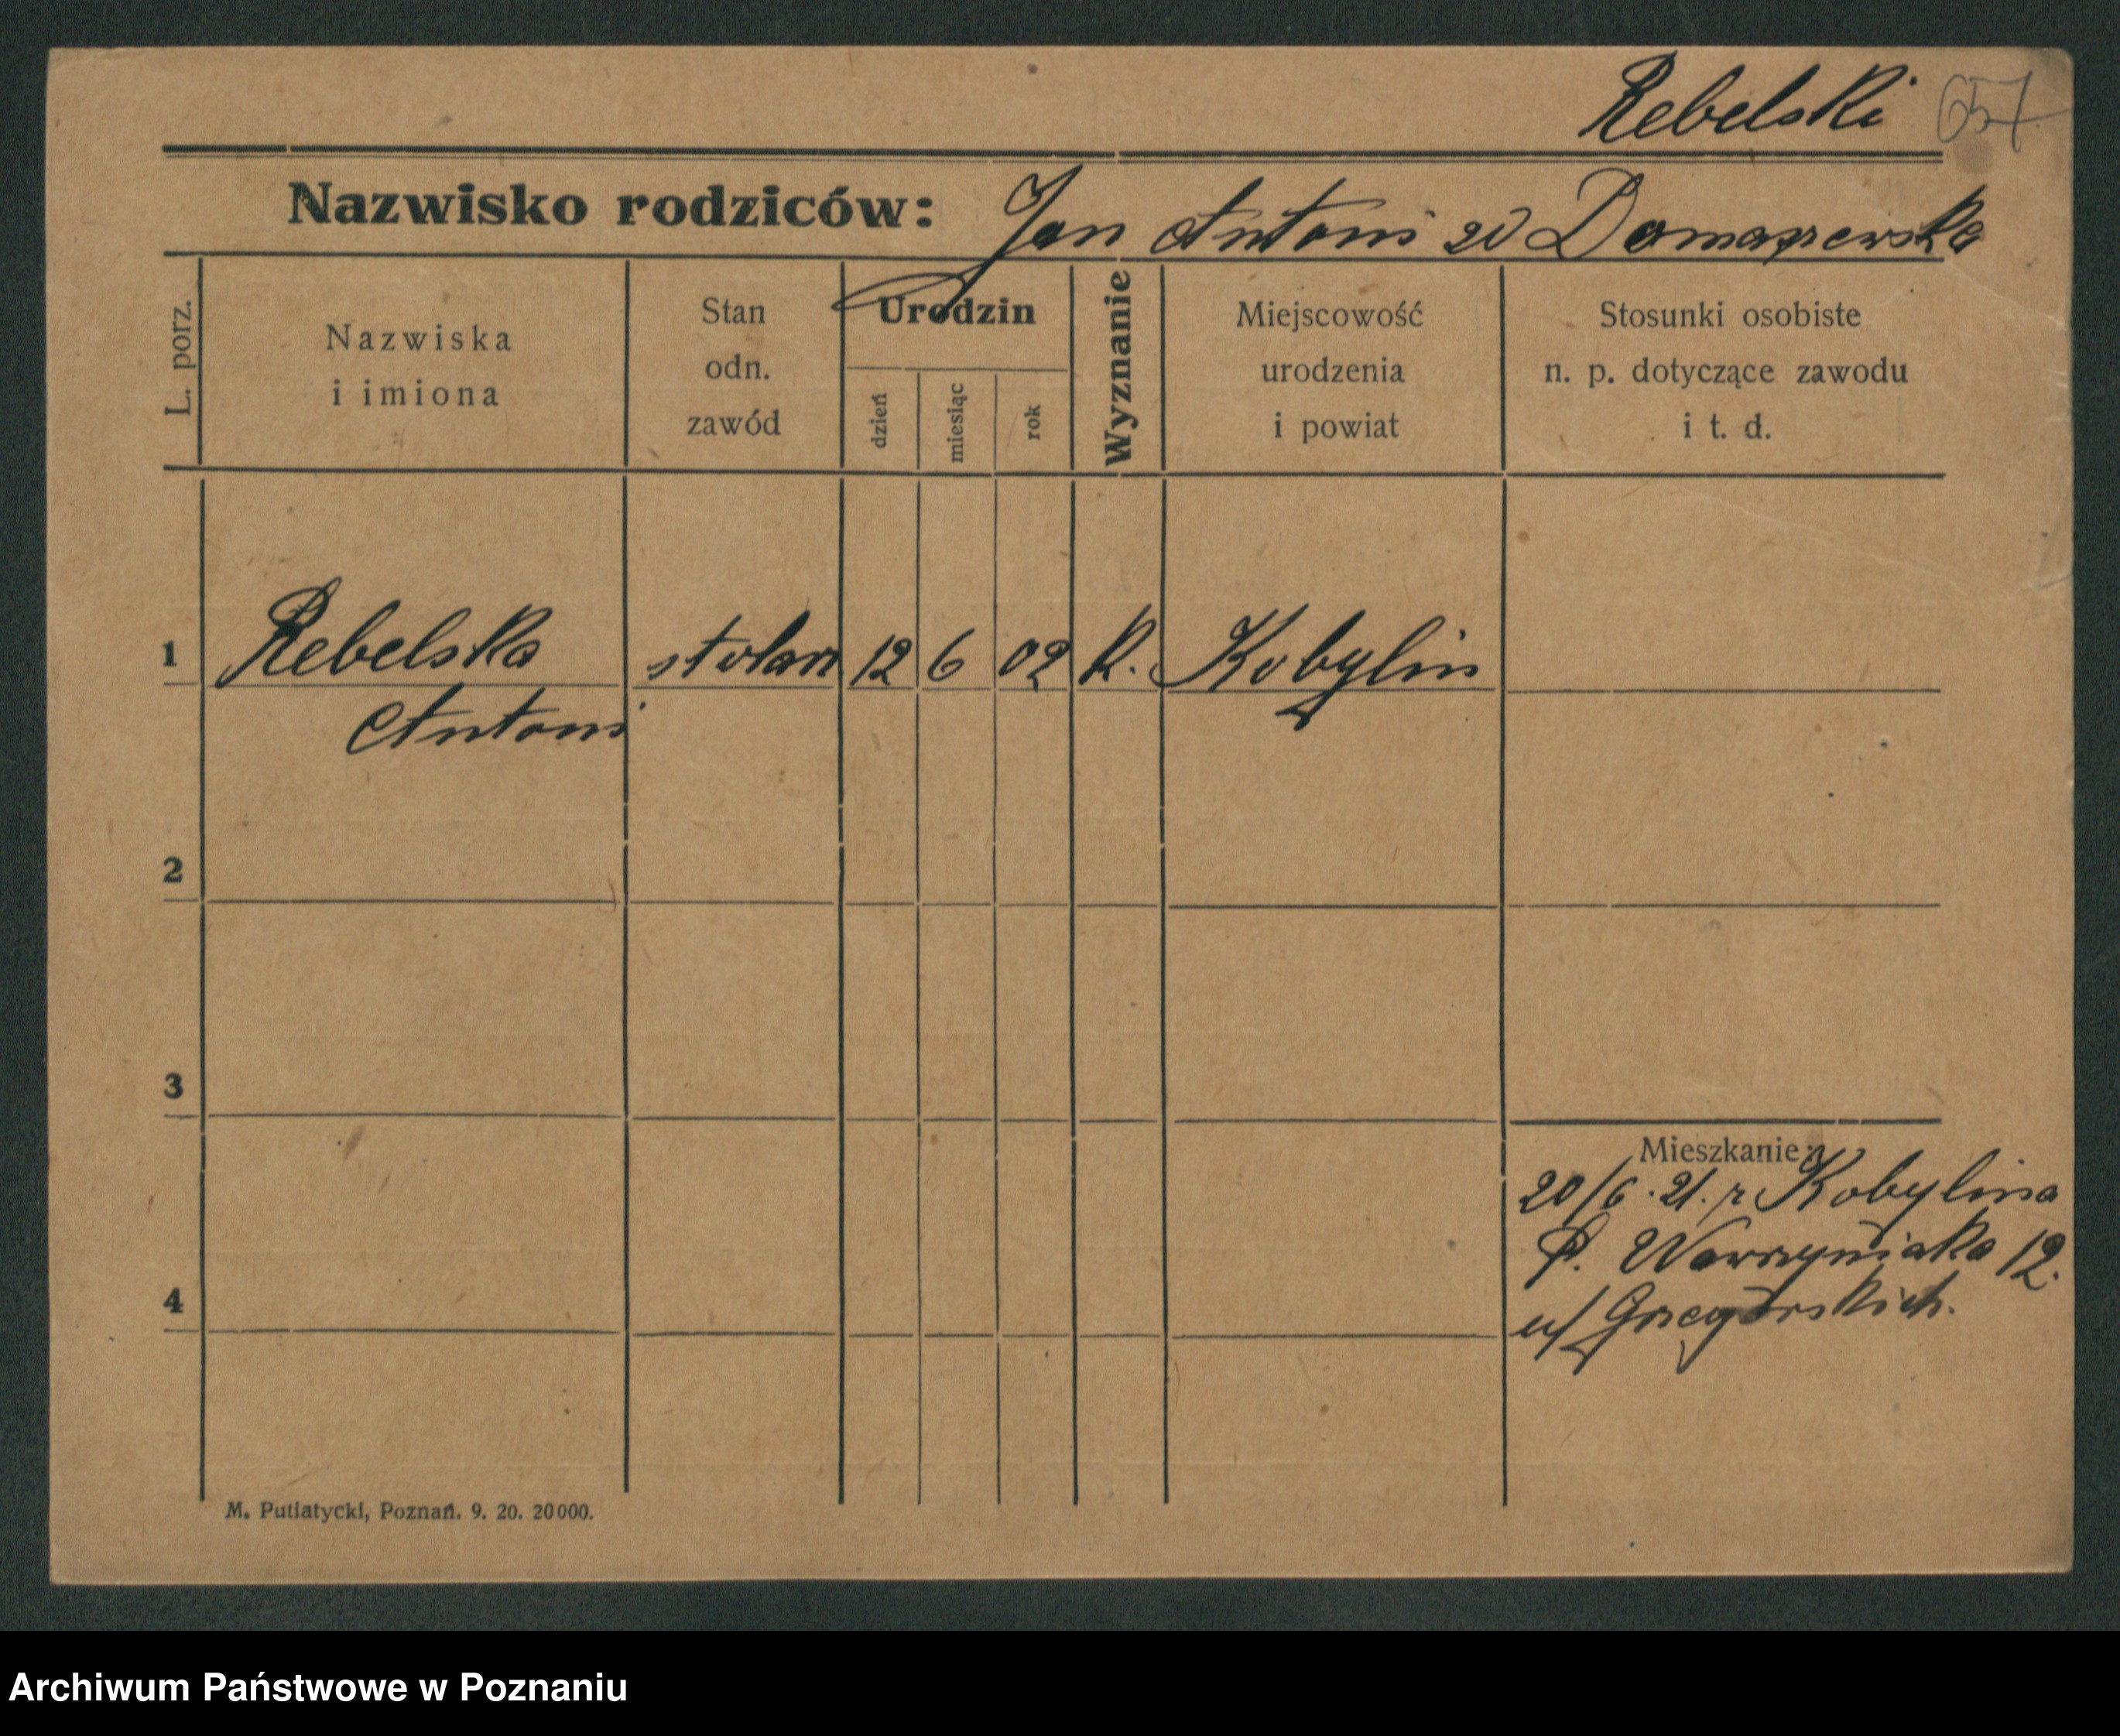 Rebelski 657
Nazwisko rodziców: Jan Antoni zd Domaszewska
L. porz.
Nazwiska
i imiona
Stan
odn.
zawód
Urodzin
dzień
miesiąc
rok
Wyznanie
Miejscowość
urodzenia
i powiat
Stosunki osobiste
n. p. dotyczące zawodu
i t. d.
1 Rebelska stolarz 12 6 02 K. Kobylin
Antoni
2
3
Mieszkanie:
20/6. 21. z Kobylina
P. Wawrzyniaka 12.
u/ Grzegorskich.
4
M. Putiatycki, Poznań. 9. 20. 20000.
Archiwum Państwowe w Poznaniu